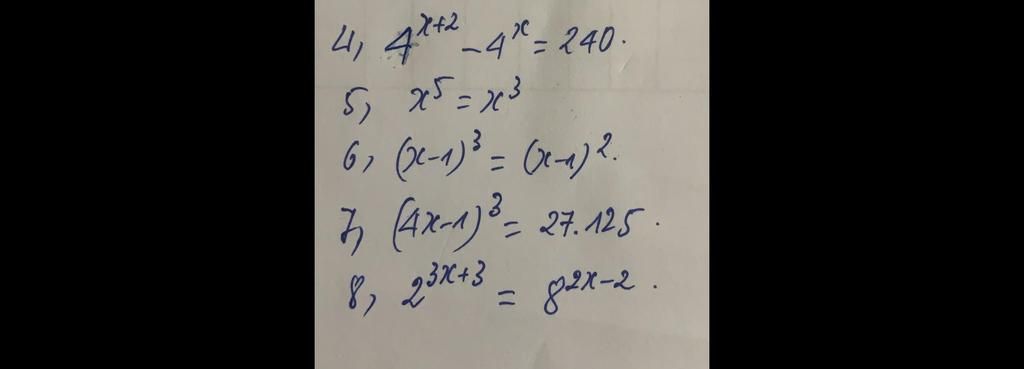 4, 4^{x+2} - 4^x = 240.
5, x^5 = x^3
6, (x-1)^3 = (x-1)^2.
7, (4x-1)^3 = 27.125.
8, 2^{3x+3} = 8^{2x-2}.